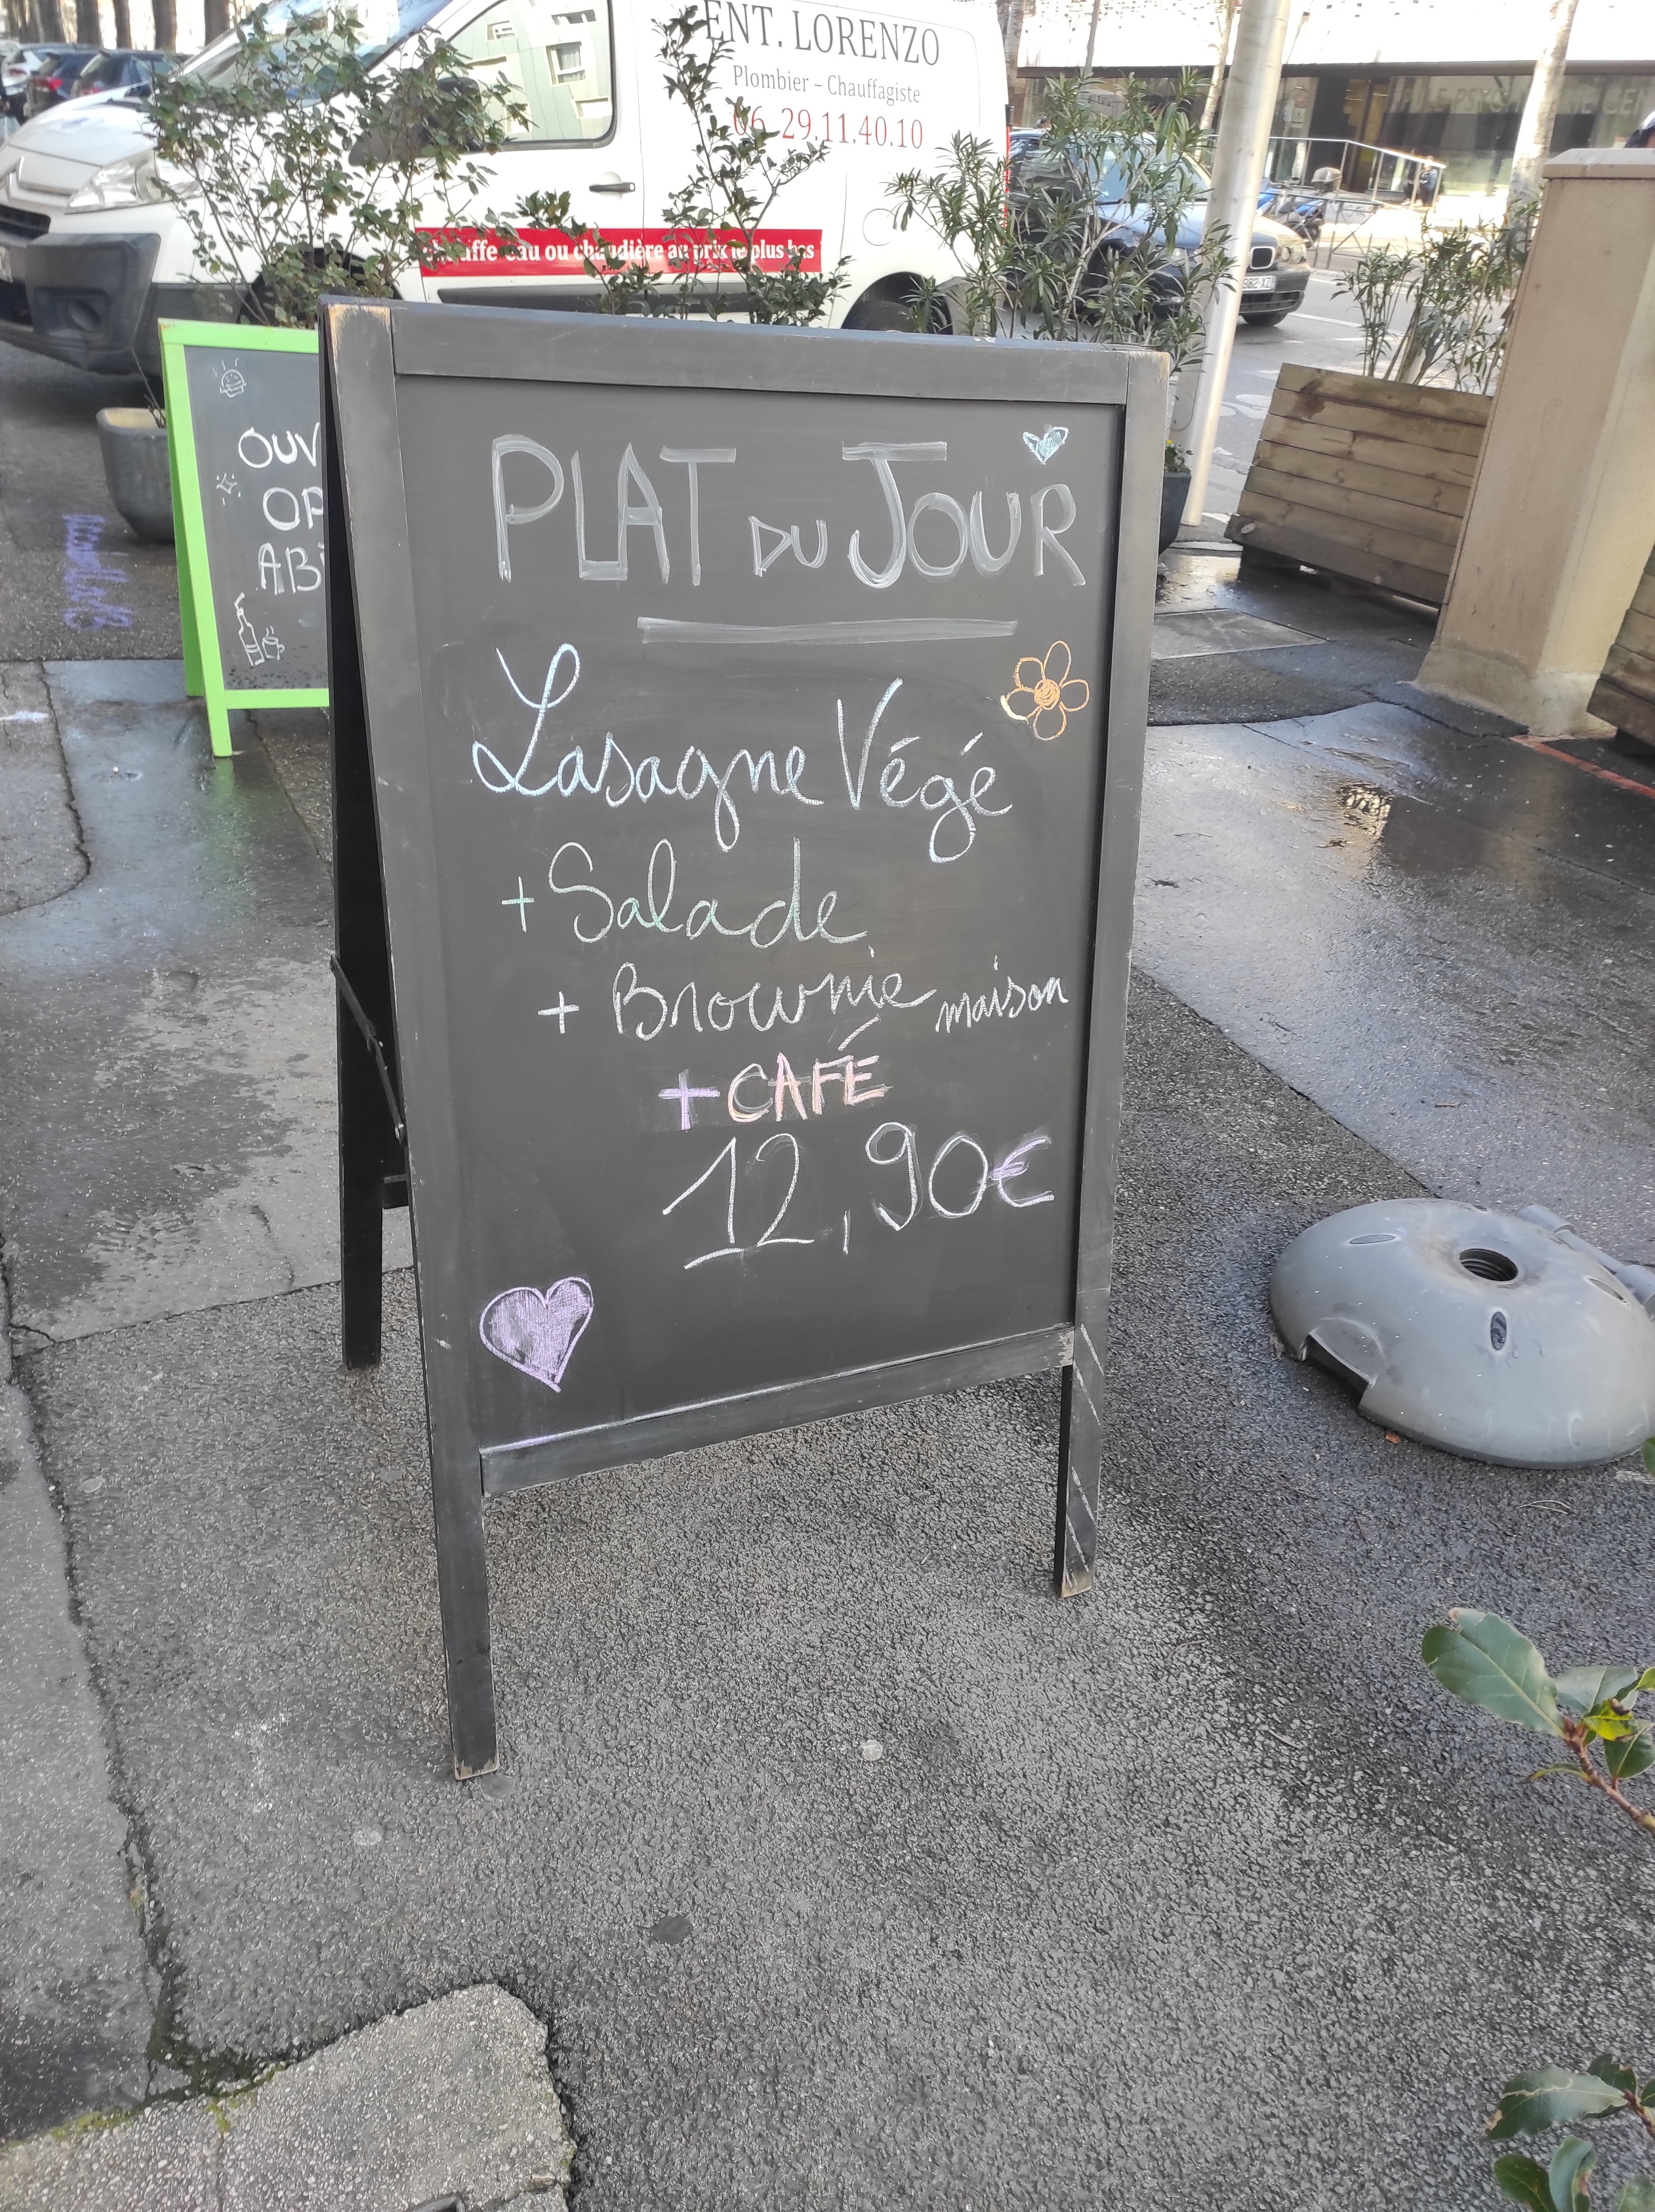 ENT. LORENZO
Plombier – Chauffagiste
06.29.11.40.10
chauffe-eau ou chaudière au prix le plus bas
OUV
OP
AB
PLAT DU JOUR
Lasagne Végé
+ Salade
+ Brownie maison
+ CAFÉ
12,90€